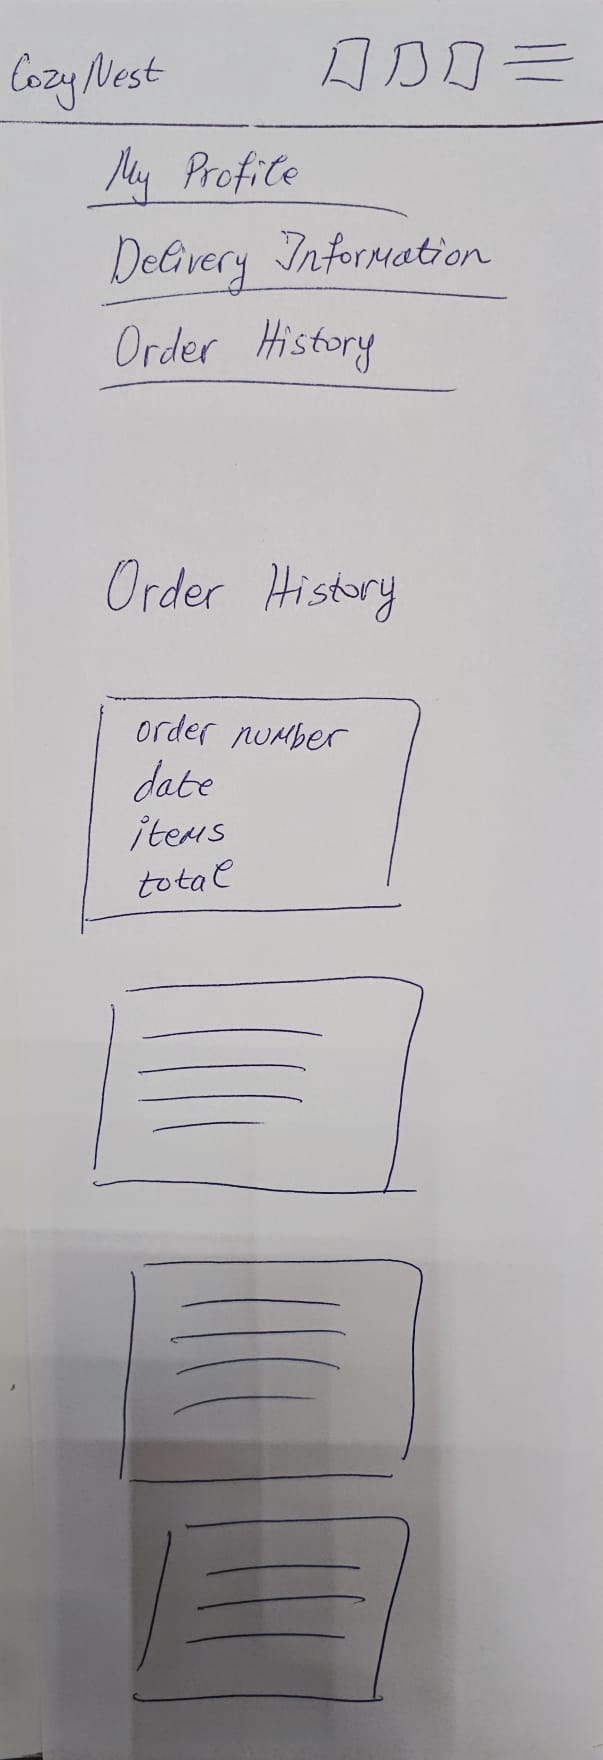 CozyNest
My Profile
Delivery Information
Order History
Order History
order number
date
items
total